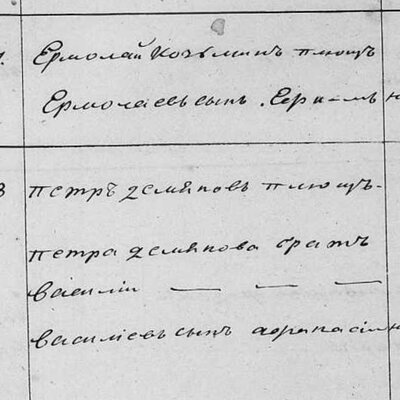 Ермолай Козьминъ плющъ
Ермолаевъ сынъ
3 петръ демяновъ плющъ
петра демянова братъ
василiи — — —
василiевъ сынъ афанасiи